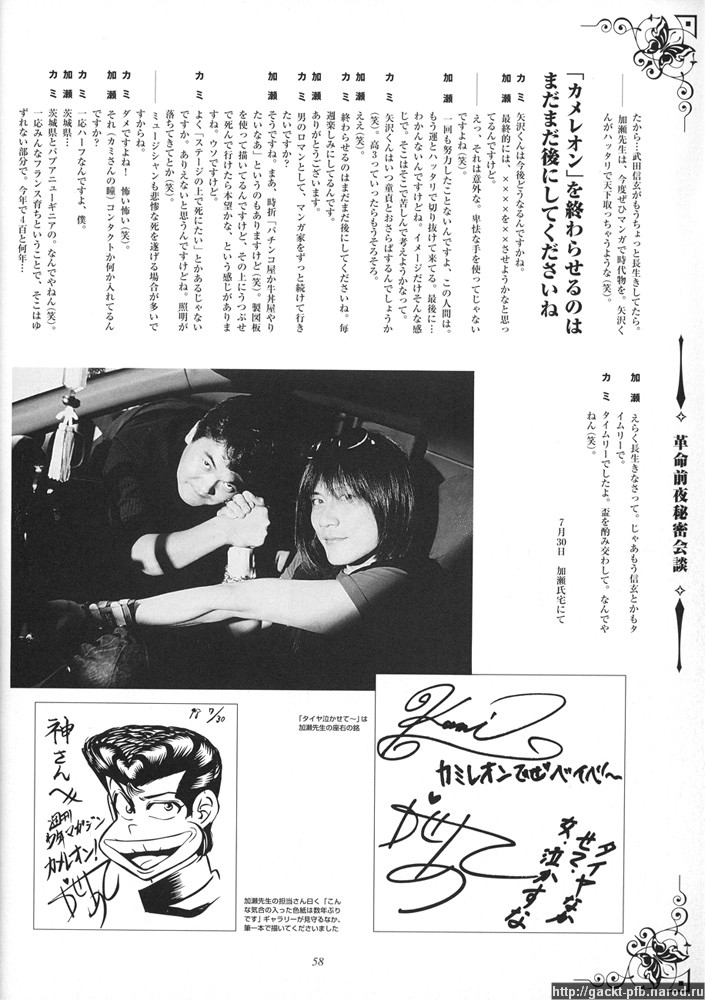 革命前夜秘密会談
――たから…武田信玄がもうちょっと長生きしてたら。
加瀬先生は、今度ぜひマンガで時代物を。矢沢く
んがハッタリで天下取っちゃうような(笑)。
加瀬 えらく長生きなさって。じゃあもう信玄とかもタ
イムリーで。
カミ タイムリーでしたよ。盃を酌み交わして。なんでや
ねん(笑)。
7月30日 加瀬氏宅にて
「カメレオン」を終わらせるのは
まだまだ後にしてくださいね
カミ 矢沢くんは今後どうなるんですかね。
加瀬 最終的には、××××を××させようかなと思っ
てるんですけど。
――えっ、それは意外な。卑怯な手を使ってじゃない
ですよね(笑)。
加瀬 一回も努力したことないんですよ、この人間は。
もう運とハッタリで切り抜けて来てる。最後に…
わかんないんですけどね。イメージだけそんな感
じで。そこはそこで苦しんで考えようかなって。
カミ 矢沢くんはいつ童貞とおさらばするんでしょうか
(笑)。高3っていったらもうそろそろ。
加瀬 ええ(笑)。
カミ 終わらせるのはまだまだ後にしてくださいね。毎
週楽しみにしてるんです。
加瀬 ありがとうございます。
カミ 男のロマンとして、マンガ家をずっと続けて行き
たいですか?
加瀬 そうですね。まあ、時折「パチンコ屋か牛丼屋やり
たいなあ」というのもありますけど(笑)。製図板
を使って描いてるんですけど、その上にうつぶせ
で死んで行けたら本望かな、という感じがありま
すね。ウソですけど。
カミ よく「ステージの上で死にたい」とかあるじゃない
ですか。ありえないと思うんですけどね。照明が
落ちてきてとか(笑)。
――ミュージシャンも悲惨な死を遂げる場合が多いで
すからね。
カミ ダメですよね! 怖い怖い(笑)。
加瀬 それ(カミさんの瞳)コンタクトか何か入れてるん
ですか?
カミ 一応ハーフなんですよ、僕。
加瀬 茨城県…
カミ 茨城県とパプアニューギニアの。なんでやねん(笑)。
一応みんなフランス育ちということで、そこはゆ
ずれない部分で。今年で4百と何年…
「タイヤ泣かせて〜」は
加瀬先生の座右の銘
'98 7/30
神さんへ
週刊
少年マガジン
カメレオン!
かせあつし
加瀬先生の担当さん曰く「こん
な気合の入った色紙は数年ぶり
です」ギャラリーが見守るなか、
筆一本で描いてくださいました
Kami
カミレオンでぜ ベイベ〜
タイヤなか
せて・
女・泣かすな
かせあつし
58
http://gackt-pfb.narod.ru